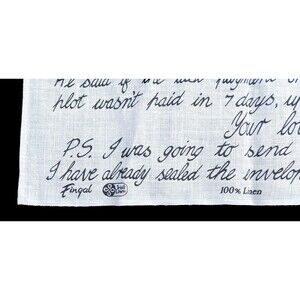 He said if the last payment on
plot wasn't paid in 7 days, up
Your lov
P.S. I was going to send
I have already sealed the envelop
Fingal
100% Linen